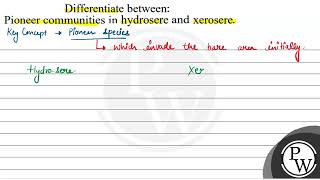 Differentiate between:
Pioneer communities in hydrosere and xerosere.
Key Concept → Pioneer species
↳ which invade the bare area initially.
Hydrosere Xer
PW
PW